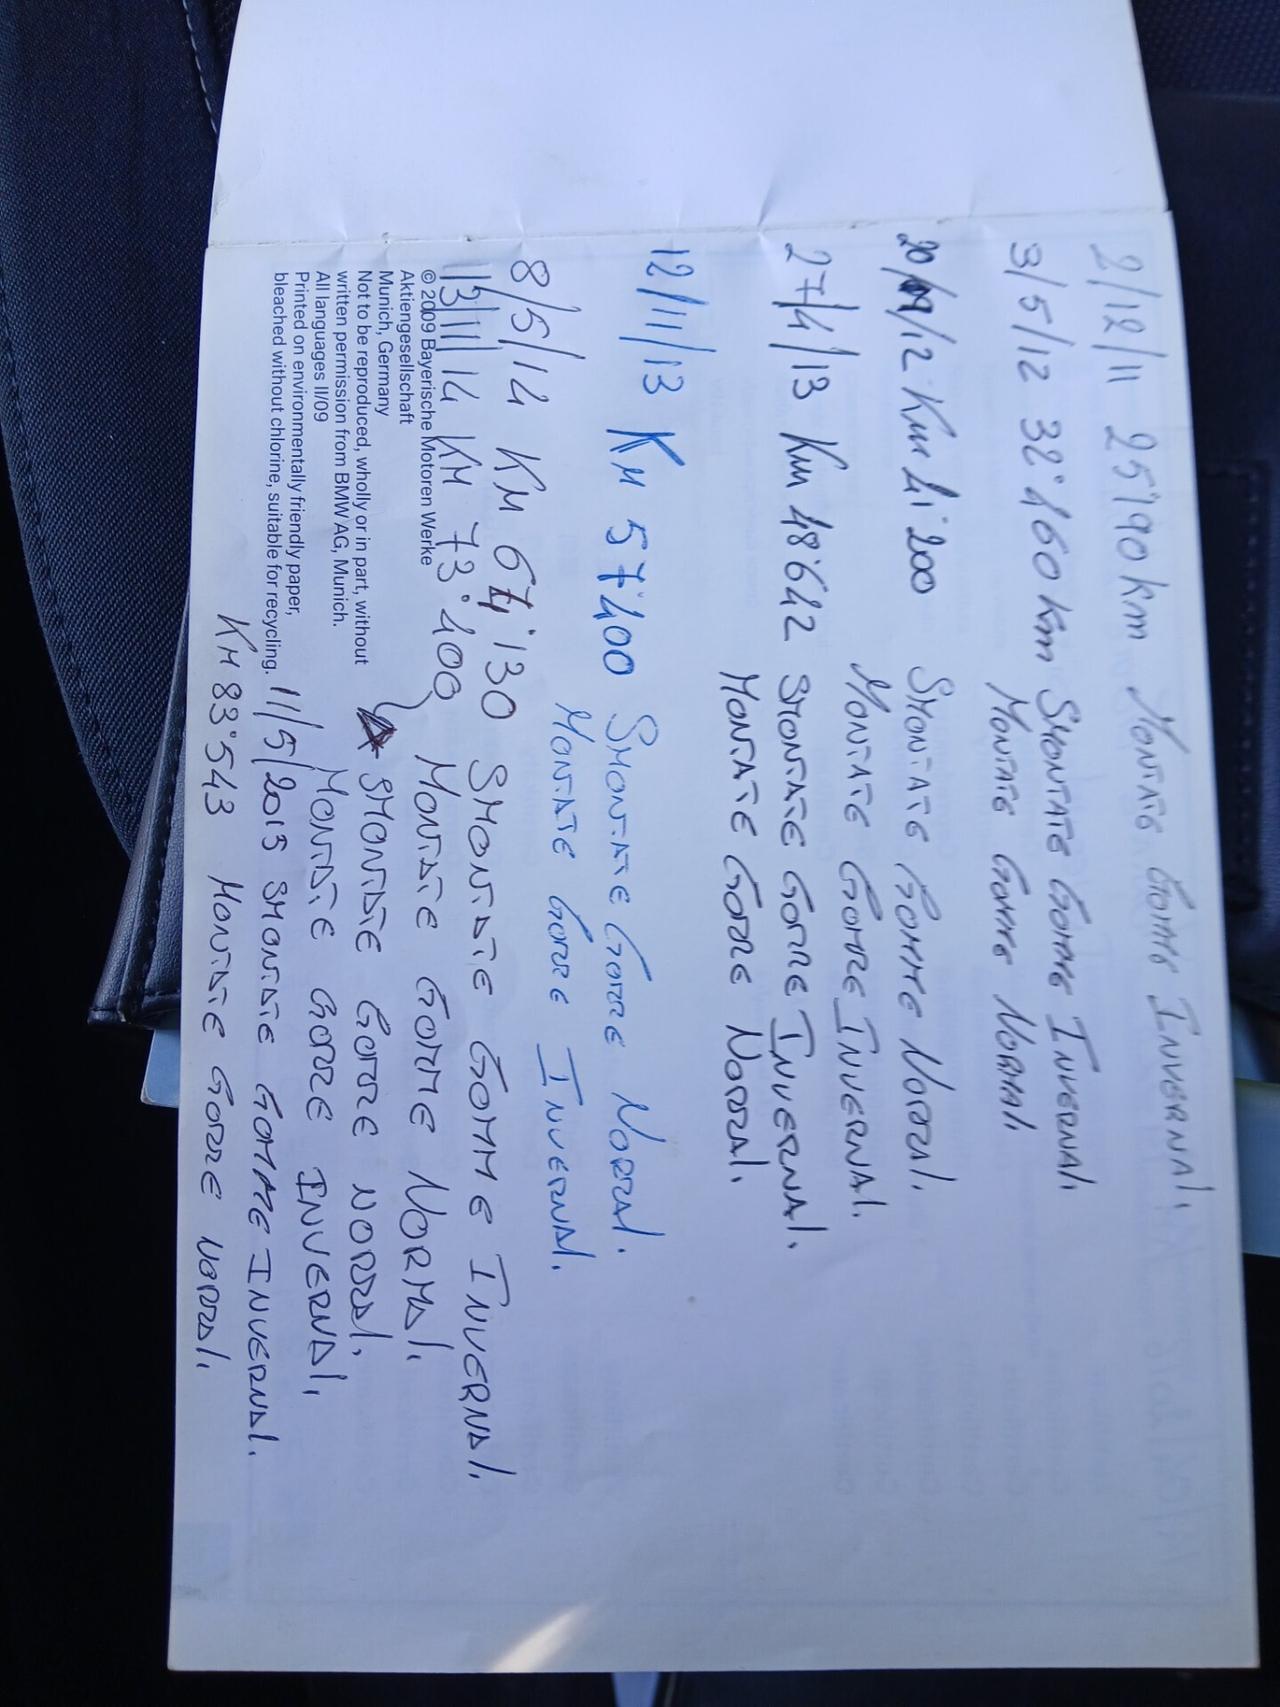 2/12/11 25790 km MONTATE GOMME INVERNALI.
3/5/12 32°460 km SMONTATE GOMME INVERNALI
MONTATE GOMME NORMALI
/12 Km 41'200 SMONTATE GOMME NORMALI.
MONTATE GOMME INVERNALI.
27/4/13 Km 48°642 SMONTATE GOMME INVERNALI.
MONTATE GOMME NORMALI.
12/11/13 KM 57'400 SMONTATE GOMME NORMALI.
MONTATE GOMME INVERNALI.
8/5/14 KM 64'130 SMONTATE GOMME INVERNALI.
MONTATE GOMME NORMALI.
13/11/14 KM 73°400
SMONTATE GOMME NORMALI.
MONTATE GOMME INVERNALI.
© 2009 Bayerische Motoren Werke
Aktiengesellschaft
Munich, Germany
Not to be reproduced, wholly or in part, without
written permission from BMW AG, Munich.
All languages II/09
Printed on environmentally friendly paper,
bleached without chlorine, suitable for recycling.
11/5/2015 SMONTATE GOMME INVERNALI.
KM 83°543 MONTATE GOMME NORMALI.